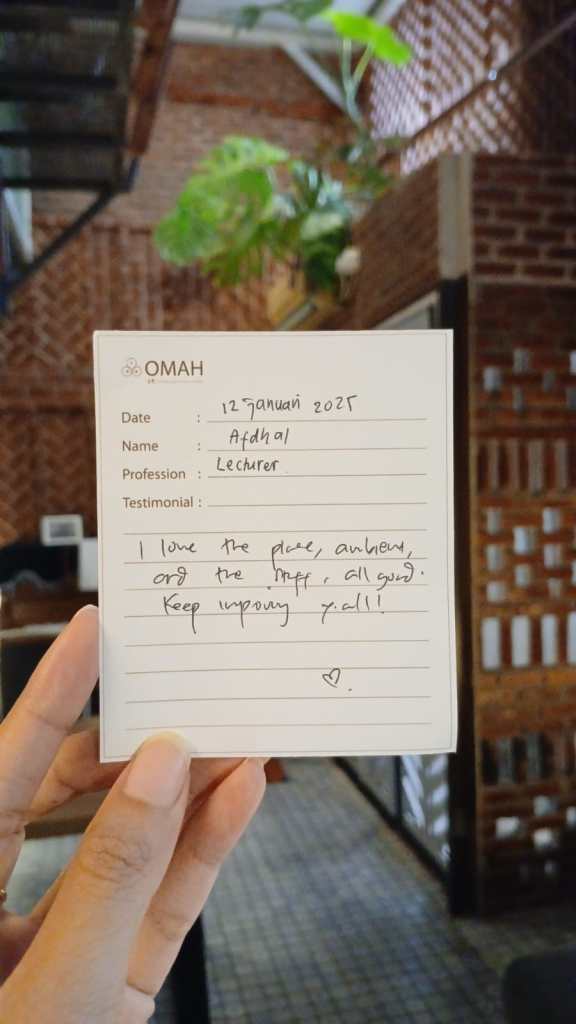 OMAH
Date : 12 Januari 2025
Name : Afdhal
Profession : Lecturer
Testimonial :
I love the place, ambient,
and the staff, all good.
Keep improving y'all!